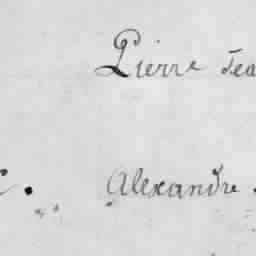 Pierre Jea
Alexandre